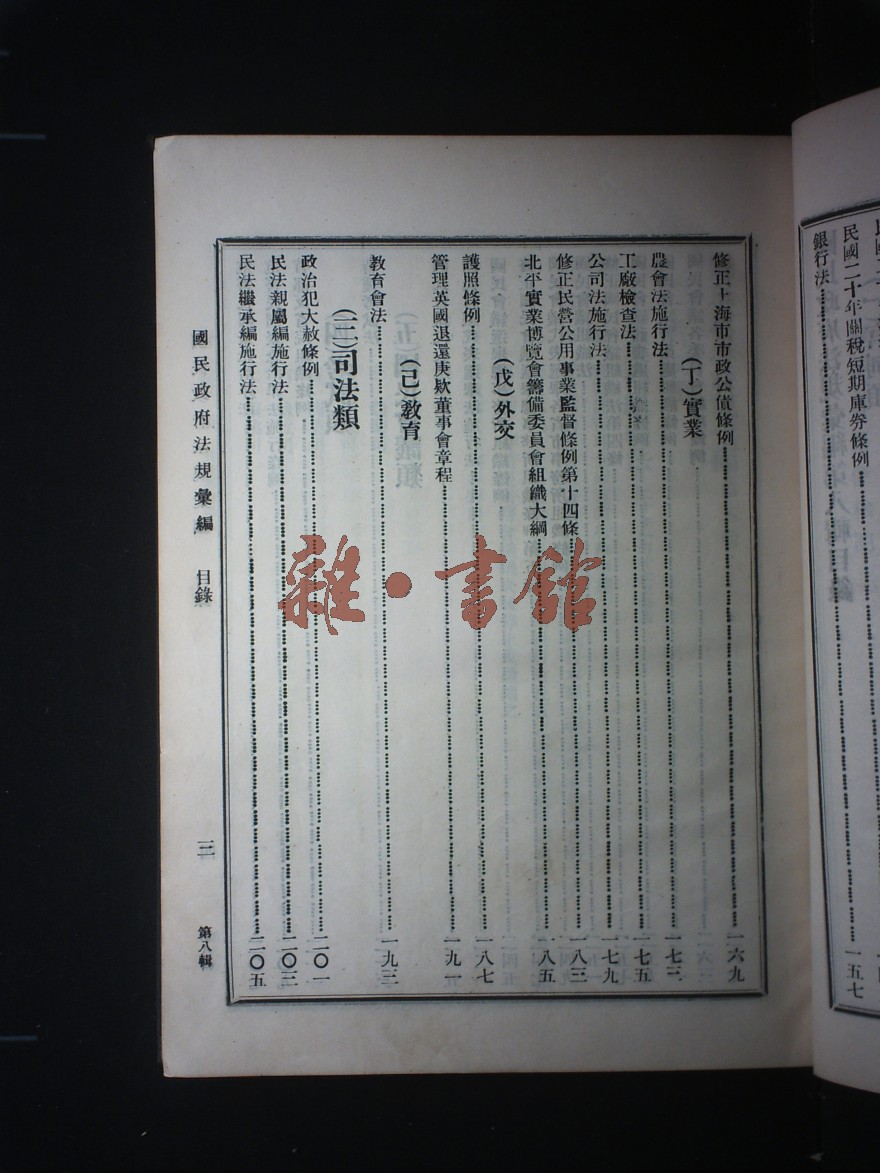 民國二十年關稅短期庫券條例
銀行法……一五七
修正上海市市政公債條例……一六九
(丁)實業
農會法施行法……一七三
工廠檢查法……一七五
公司法施行法……一七九
修正民營公用事業監督條例第十四條……一八三
北平實業博覽會籌備委員會組織大綱……一八五
(戊)外交
護照條例……一八七
管理英國退還庚款董事會章程……一九一
(己)教育
教育會法……一九三
(三)司法類
政治犯大赦條例……二〇一
民法親屬編施行法……二〇三
民法繼承編施行法……二〇五
國民政府法規彙編 目錄 三 第八輯
雜·書館